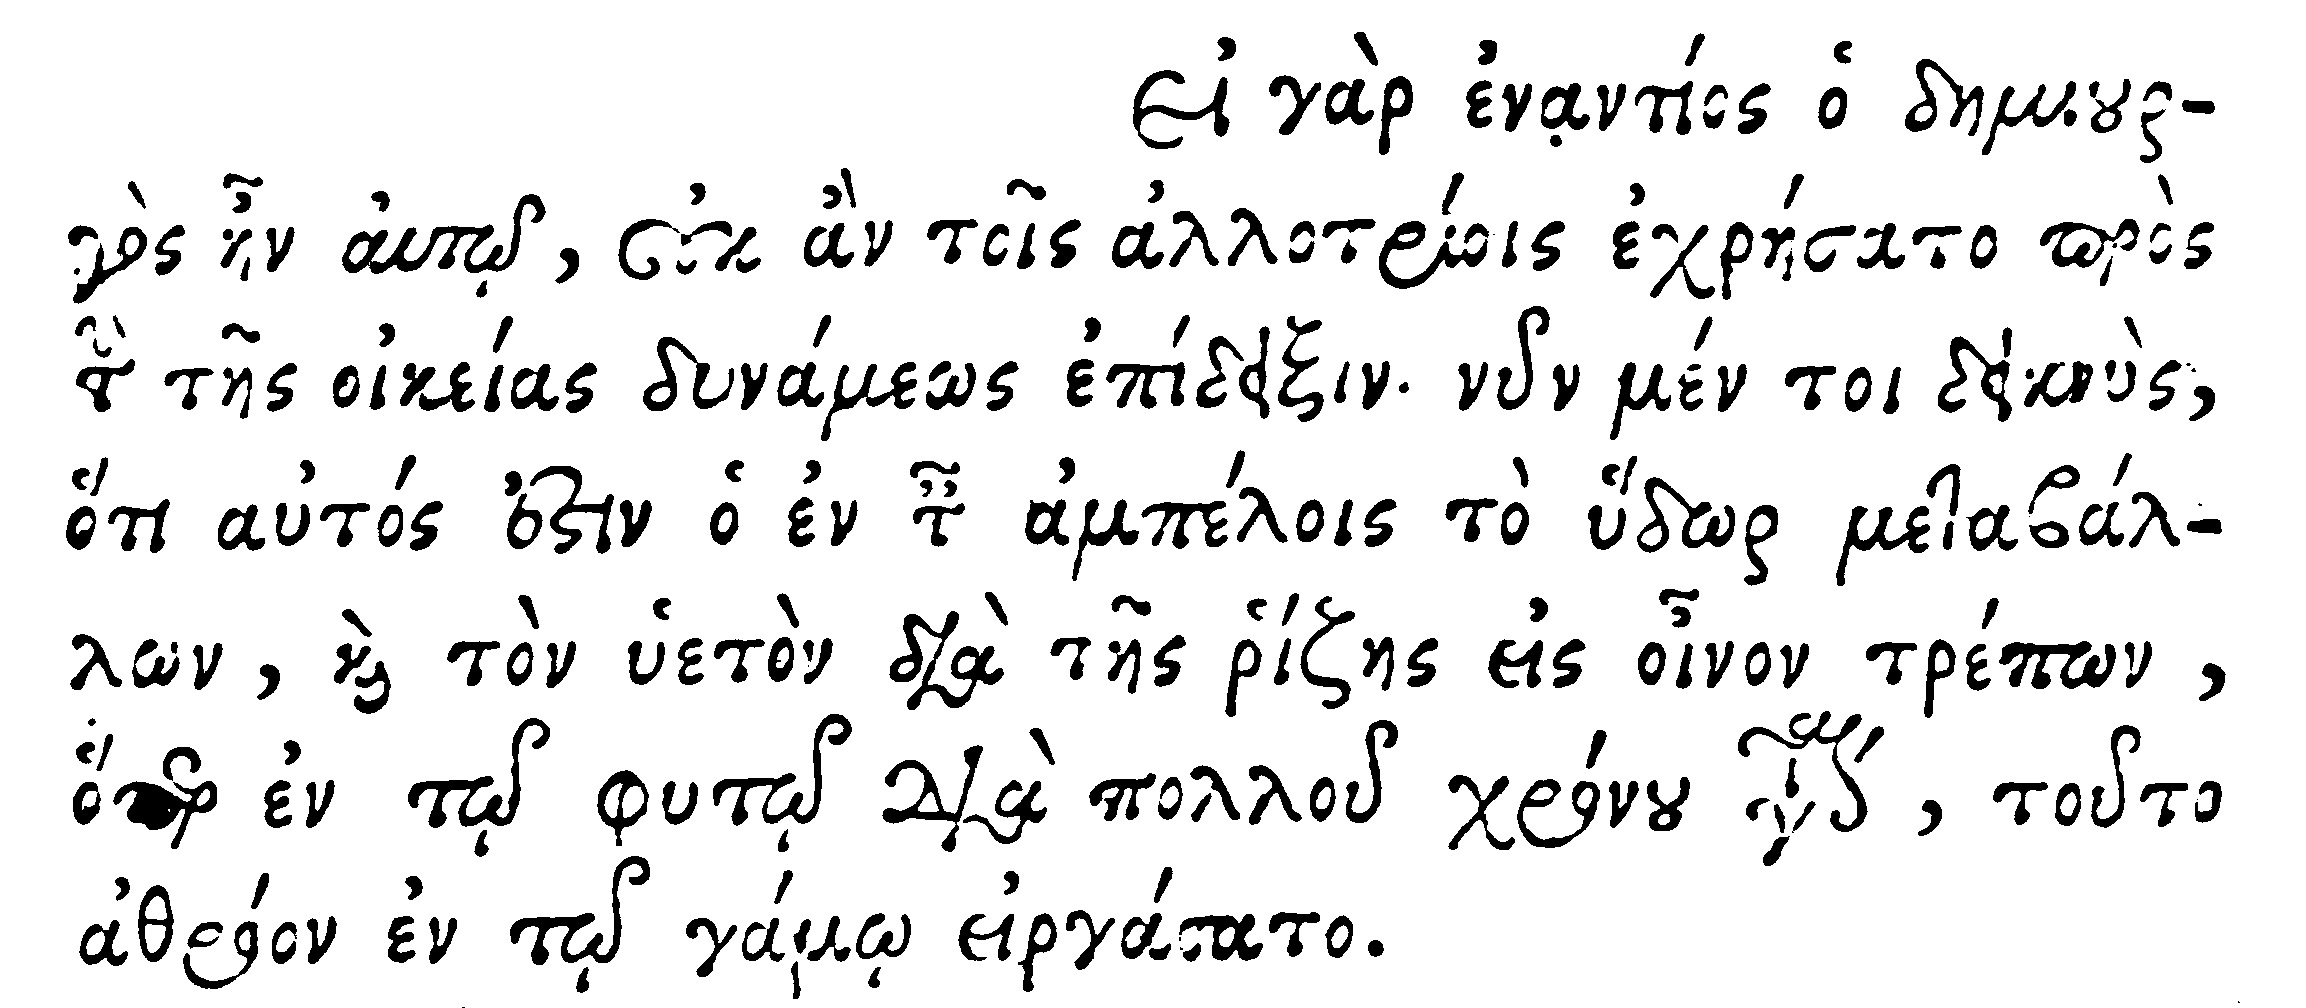 Εἰ γὰρ ἐναντίος ὁ δημιουρ-
γὸς ἦν ἀυτῷ, οὐκ ἂν τοῖς ἀλλοτρίοις ἐχρήσατο πρὸς
τὴν τῆς οἰκείας δυνάμεως ἐπίδειξιν. νῦν μέν τοι δεικνὺς,
ὅτι αὐτός ἐστιν ὁ ἐν ταῖς ἀμπέλοις τὸ ὕδωρ μεταβάλ-
λων, καὶ τὸν ὑετὸν διὰ τῆς ῥίζης εἰς οἶνον τρέπων,
ὅπερ ἐν τῷ φυτῷ διὰ πολλοῦ χρόνου γίνεται, τοῦτο
ἀθρόον ἐν τῷ γάμῳ εἰργάσατο.